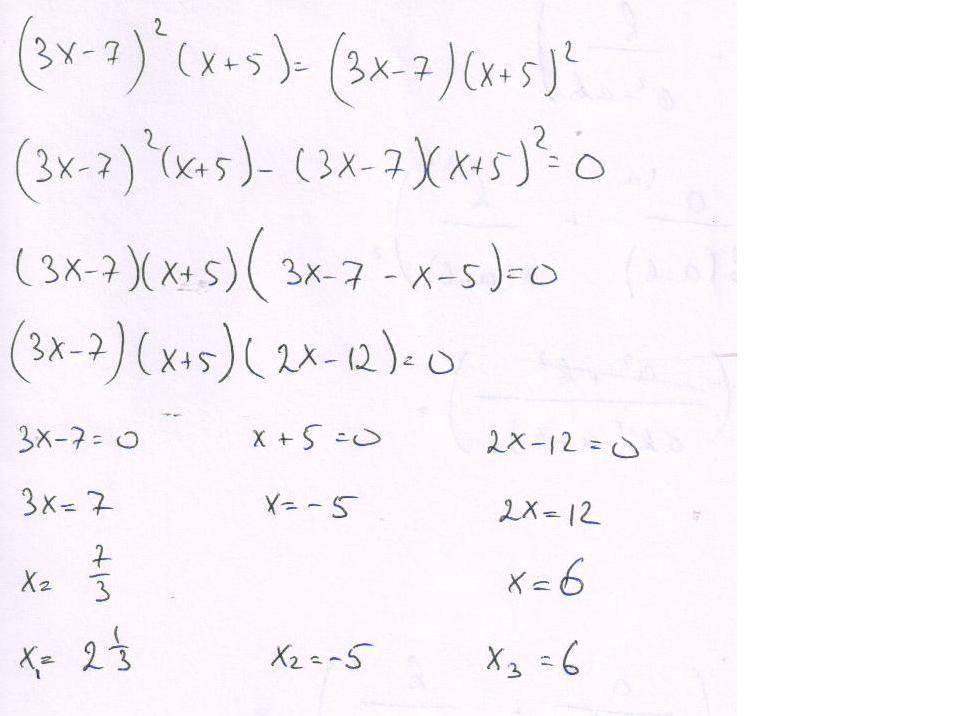 (3x-7)²(x+5)=(3x-7)(x+5)²
(3x-7)²(x+5)-(3x-7)(x+5)²=0
(3x-7)(x+5)(3x-7-x-5)=0
(3x-7)(x+5)(2x-12)=0
3x-7=0 x+5=0 2x-12=0
3x=7 x=-5 2x=12
x= 7/3 x=6
x₁= 2 1/3 x₂=-5 x₃=6